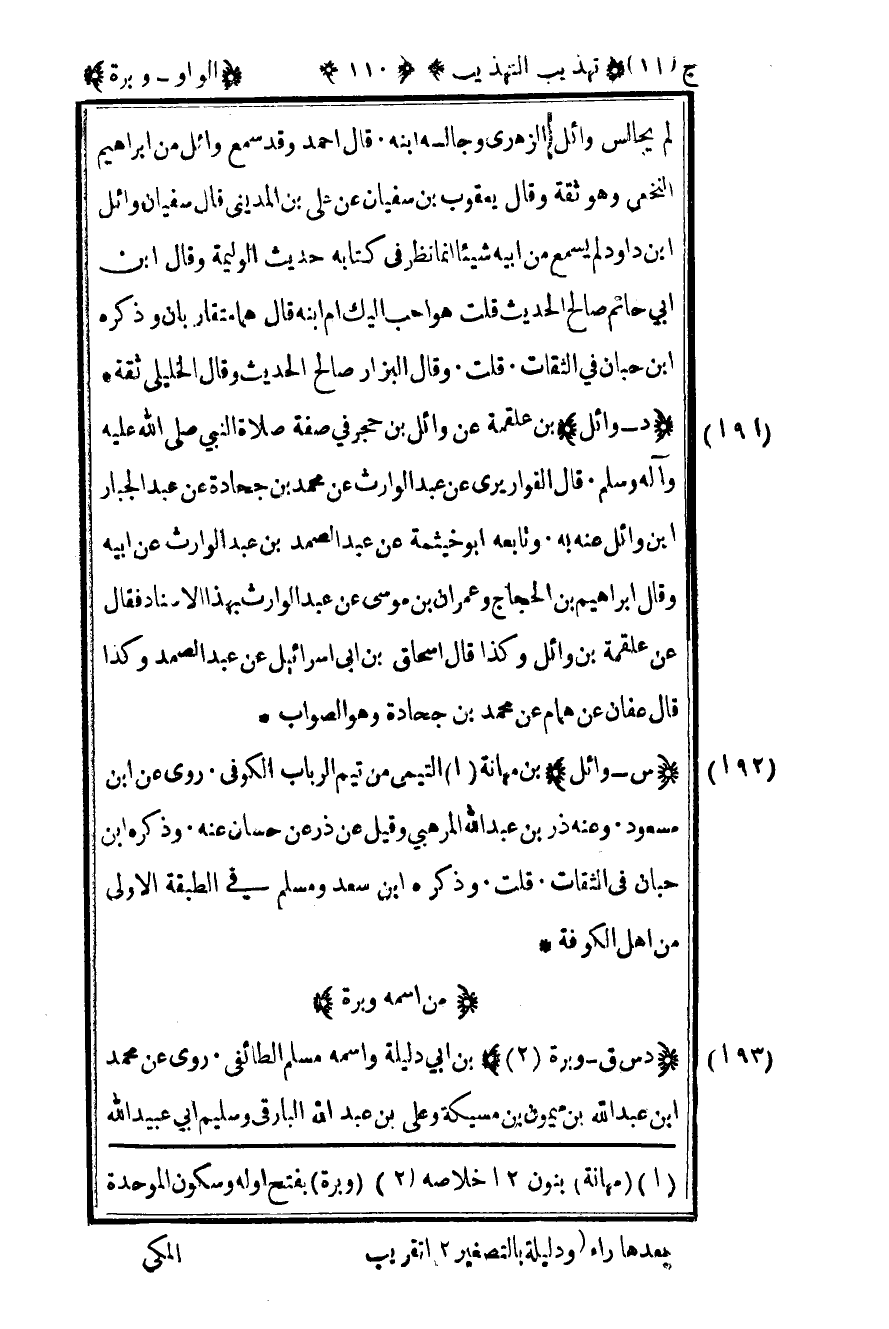 ج (١١) ﴿ تهذيب التهذيب ﴾ ﴿ ١١٠ ﴾ ﴿ الواو - وبرة ﴾
لم يجالس وائل الزهرى وجالسه ابنه · قال احمد وقد سمع وائل من ابراهيم
النخعى وهو ثقة وقال يعقوب بن سفيان عن على بن المدينى قال سفيان وائل
ابن داود لم يسمع من ابيه شيئا انما نظر فى كتابه حديث الوليمة وقال ابن
ابي حاتم صالح الحديث قلت هو احب اليك ام ابنه قال هما متقاربان وذكره
ابن حبان في الثقات · قلت · وقال البزار صالح الحديث وقال الخليلى ثقة *
(١٩١) ﴿ د - وائل ﴾ بن علقمة عن وائل بن حجر في صفة صلاة النبي صلى الله عليه
وآله وسلم · قال القواريرى عن عبدالوارث عن محمد بن جحادة عن عبدالجبار
ابن وائل عنه به · وتابعه ابو خيثمة عن عبدالصمد بن عبدالوارث عن ابيه
وقال ابراهيم بن الحجاج وعمران بن موسى عن عبدالوارث بهذا الاسناد فقال
عن علقمة بن وائل وكذا قال اسحاق بن ابى اسرائيل عن عبدالصمد وكذا
قال عفان عن همام عن محمد بن جحادة وهو الصواب *
(١٩٢) ﴿ س - وائل ﴾ بن مهانة (١) التيمى من تيم الرباب الكوفى · روى عن ابن
مسعود · وعنه ذر بن عبدالله المرهبي وقيل عن ذر عن حسان عنه · وذكره ابن
حبان فى الثقات · قلت · وذكره ابن سعد ومسلم في الطبقة الاولى
من اهل الكوفة *
﴿ من اسمه وبرة ﴾
(١٩٣) ﴿ دس ق - وبرة (٢) ﴾ بن ابي دليلة واسمه مسلم الطائفى · روى عن محمد
ابن عبدالله بن ميمون بن مسيكة وعلى بن عبد الله البارقى وسليم ابي عبيدالله
(١) (مهانة) بنون ١٢ خلاصه (٢) (وبرة) بفتح اوله وسكون الموحدة
بعدها راء (ودليلة بالتصغير ١٢ تقريب المكى